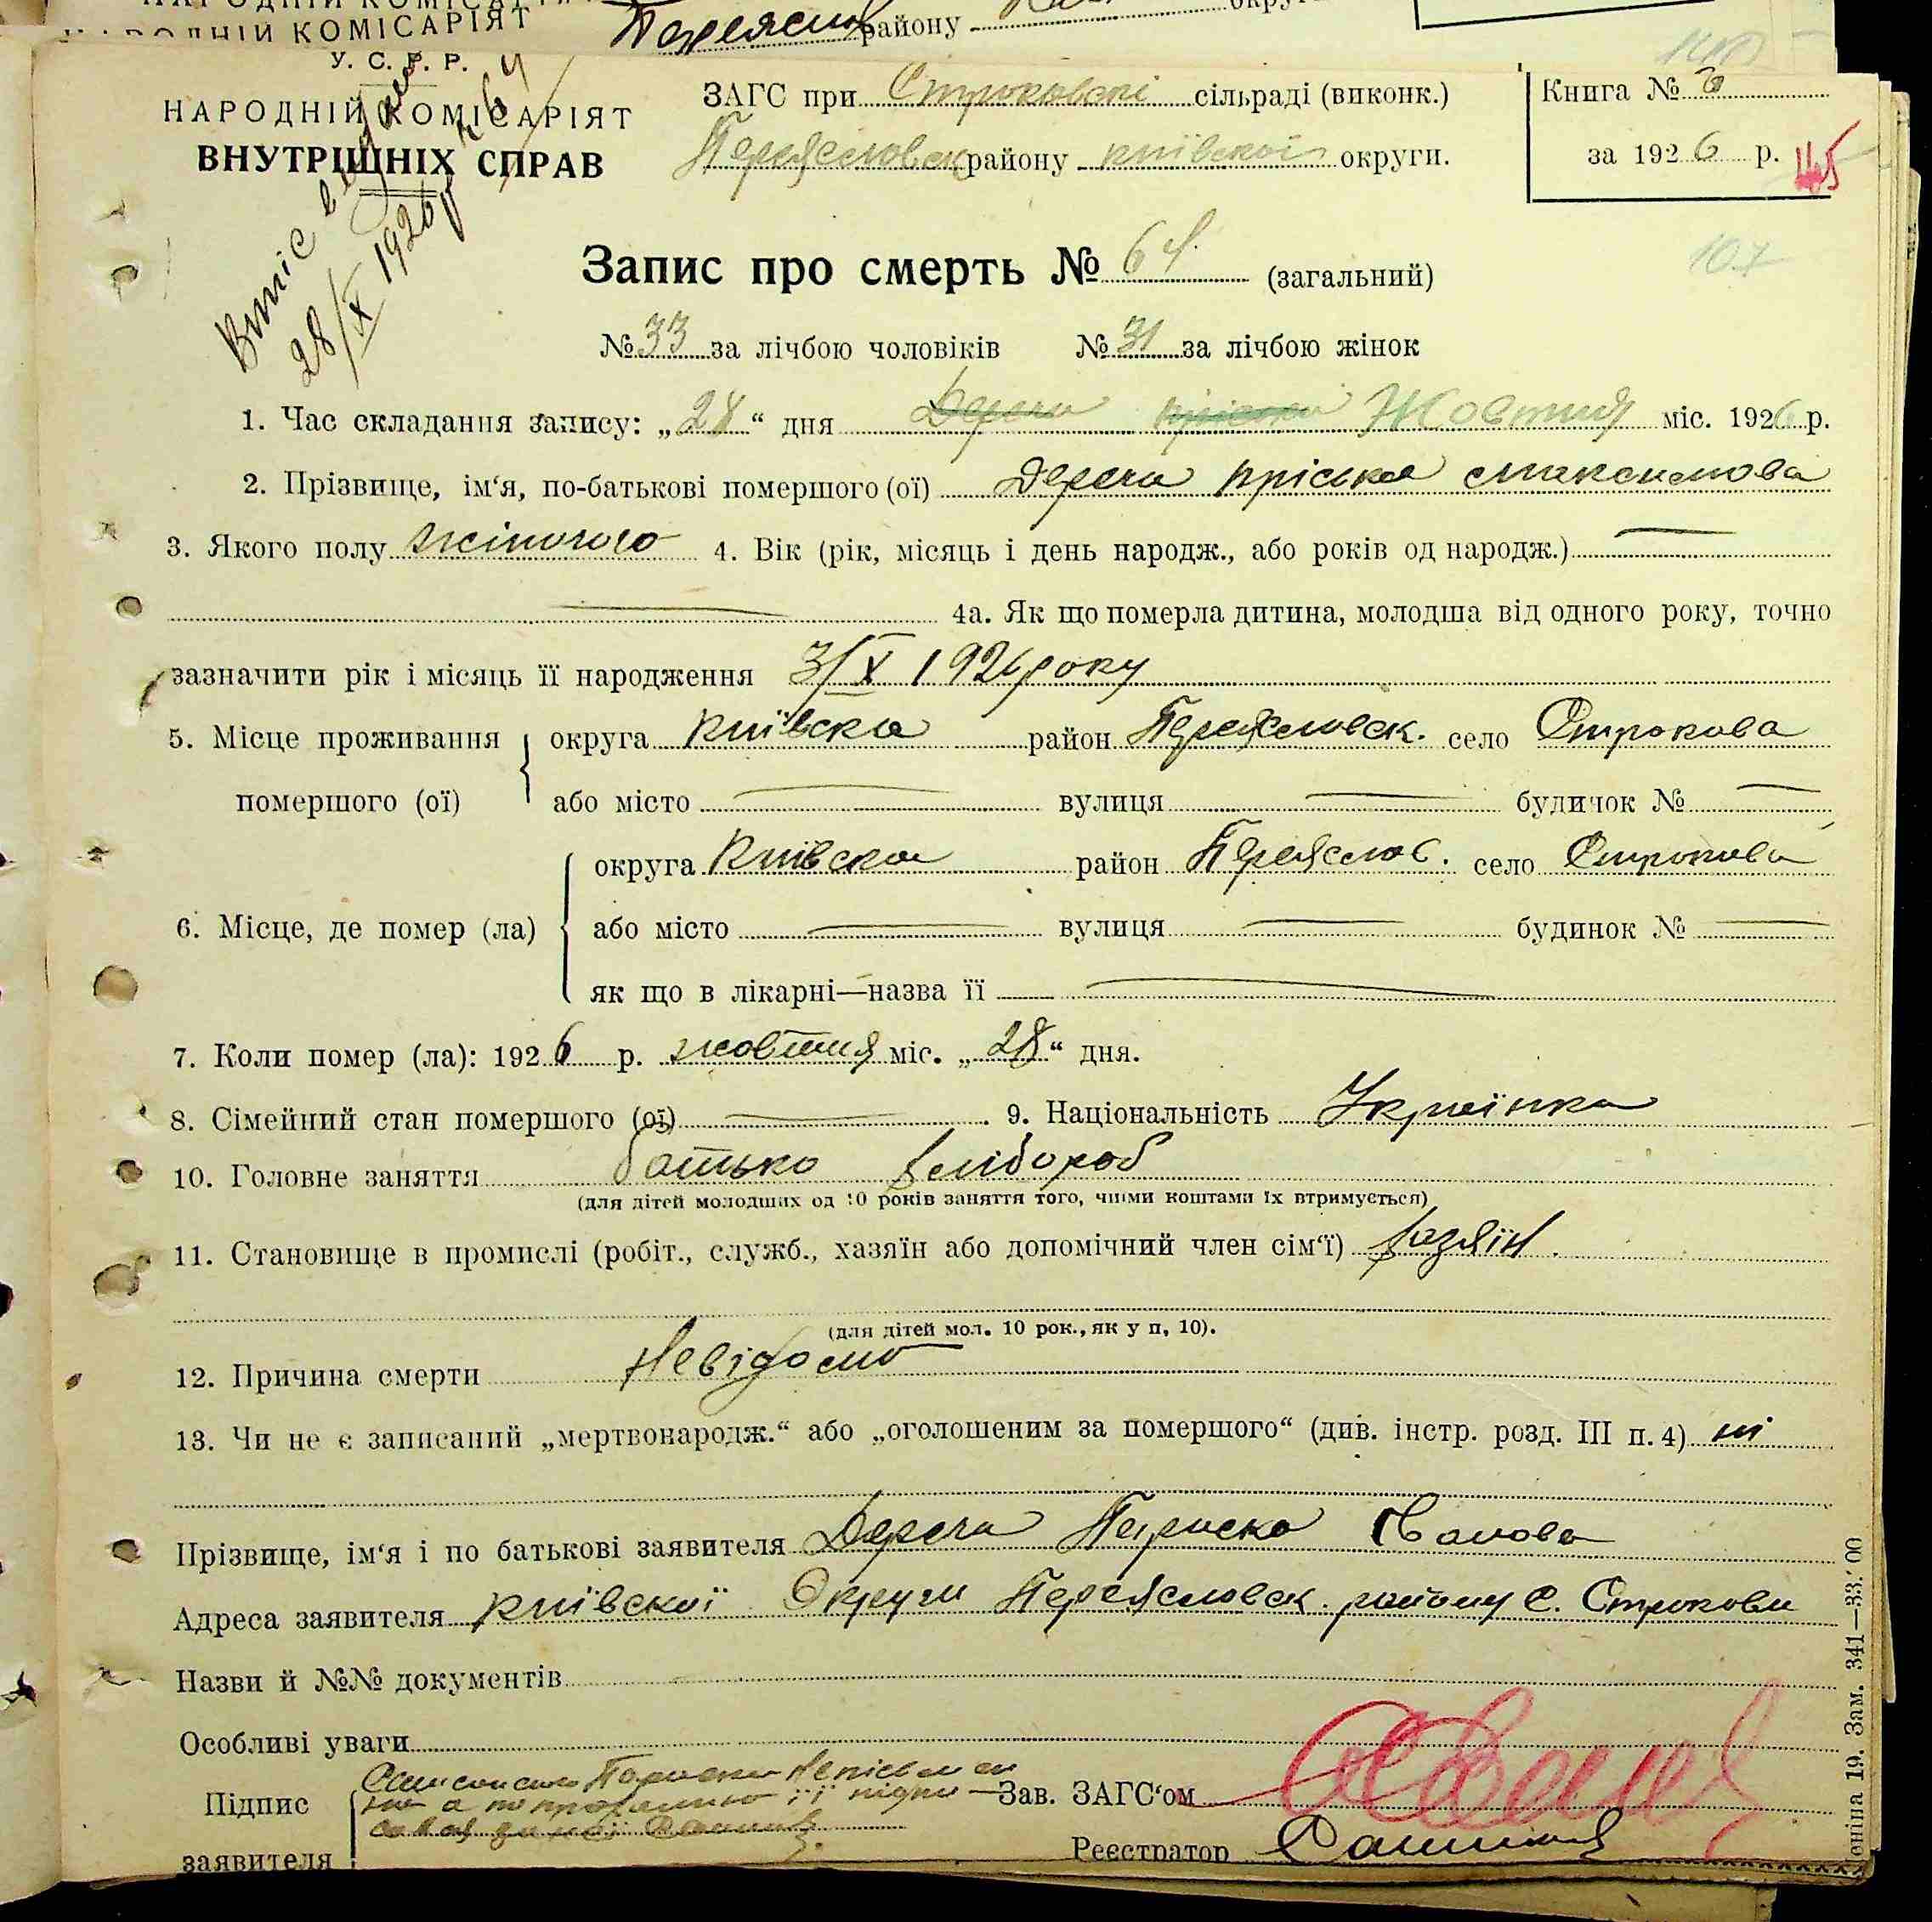 НАРОДНІЙ КОМІСАРІЯТ
району
У. С. Р. Р.
НАРОДНІЙ КОМІСАРІЯТ
ВНУТРІШНІХ СПРАВ
ЗАГС при Строковскі сільраді (виконк.)
Переясловск району київскої округи.
Книга № 3
за 1926 р. 45
28/X 1926 р
Запис про смерть № 64. (загальний)
107
№ 33 за лічбою чоловіків № 31 за лічбою жінок
1. Час складання запису: „28“ дня Жовтня міс. 1926 р.
2. Прізвище, ім‘я, по-батькові помершого (ої) Дереча пріська максимова
3. Якого полу жіночого 4. Вік (рік, місяць і день народж., або років од народж.) —
— 4а. Як що померла дитина, молодша від одного року, точно
зазначити рік і місяць її народження 3/X 1926 року
5. Місце проживання помершого (ої) округа київска район Переясловск. село Строкова
або місто — вулиця — будинок № —
6. Місце, де помер (ла) округа київска район Переяслов. село Строкова
або місто — вулиця — будинок № —
як що в лікарні—назва її —
7. Коли помер (ла): 1926 р. жовтня міс. „28“ дня.
8. Сімейний стан помершого (ої) — . 9. Національність Українка
10. Головне заняття батько хлібороб
(для дітей молодших од 10 років заняття того, чиїми коштами їх втримується)
11. Становище в промислі (робіт., служб., хазяїн або допомічний член сім‘ї) хазяїн.
(для дітей мол. 10 рок., як у п, 10).
12. Причина смерти Невідомо
13. Чи не є записаний „мертвонародж.“ або „оголошеним за помершого“ (див. інстр. розд. III п. 4) ні
Прізвище, ім‘я і по батькові заявителя Дереча Параска
Адреса заявителя київскої Округи Переясловск. району с. Строкови
Назви й №№ документів
Особливі уваги
Підпис заявителя
Зав. ЗАГС‘ом
Реєстратор
19. Зам. 341—33.'00